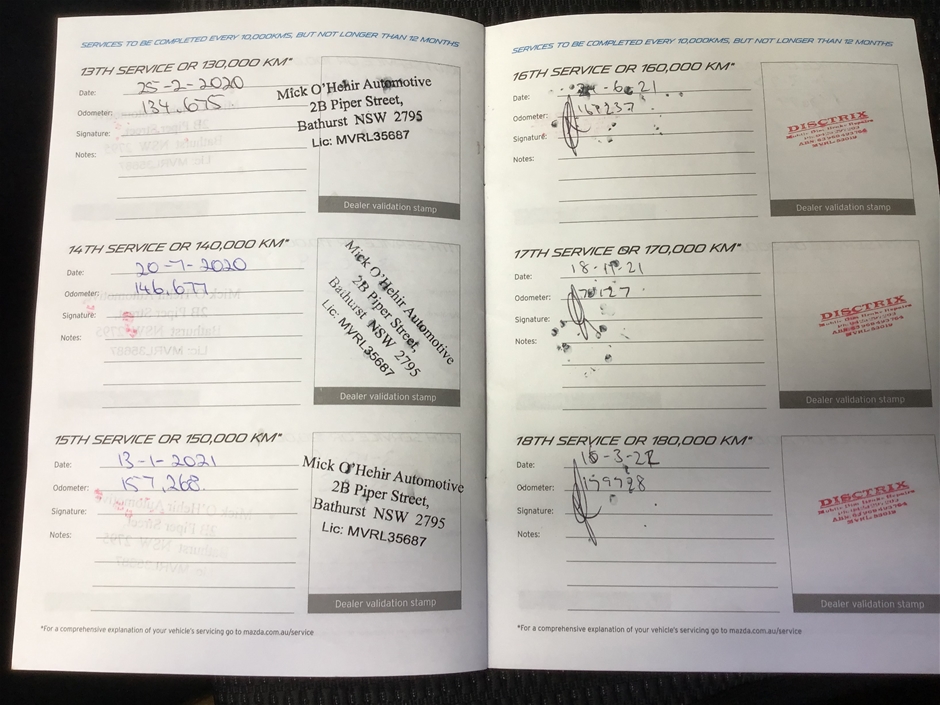 SERVICES TO BE COMPLETED EVERY 10,000KMS, BUT NOT LONGER THAN 12 MONTHS
13TH SERVICE OR 130,000 KM*
Date: 25-2-2020
Odometer: 134,675
Signature:
Notes:
Mick O'Hehir Automotive
2B Piper Street,
Bathurst NSW 2795
Lic: MVRL35687
Dealer validation stamp
14TH SERVICE OR 140,000 KM*
Date: 20-7-2020
Odometer: 146,677
Signature:
Notes:
Mick O'Hehir Automotive
2B Piper Street,
Bathurst NSW 2795
Lic: MVRL35687
Dealer validation stamp
15TH SERVICE OR 150,000 KM*
Date: 13-1-2021
Odometer: 157,268
Signature:
Notes:
Mick O'Hehir Automotive
2B Piper Street,
Bathurst NSW 2795
Lic: MVRL35687
Dealer validation stamp
*For a comprehensive explanation of your vehicle's servicing go to mazda.com.au/service
SERVICES TO BE COMPLETED EVERY 10,000KMS, BUT NOT LONGER THAN 12 MONTHS
16TH SERVICE OR 160,000 KM*
Date: -6-21
Odometer:
Signature:
Notes:
DISCTRIX
Mobile Disc Brake Repairs
Dealer validation stamp
17TH SERVICE OR 170,000 KM*
Date:
Odometer:
Signature:
Notes:
DISCTRIX
Mobile Disc Brake Repairs
Dealer validation stamp
18TH SERVICE OR 180,000 KM*
Date:
Odometer:
Signature:
Notes:
DISCTRIX
Mobile Disc Brake Repairs
Dealer validation stamp
*For a comprehensive explanation of your vehicle's servicing go to mazda.com.au/service